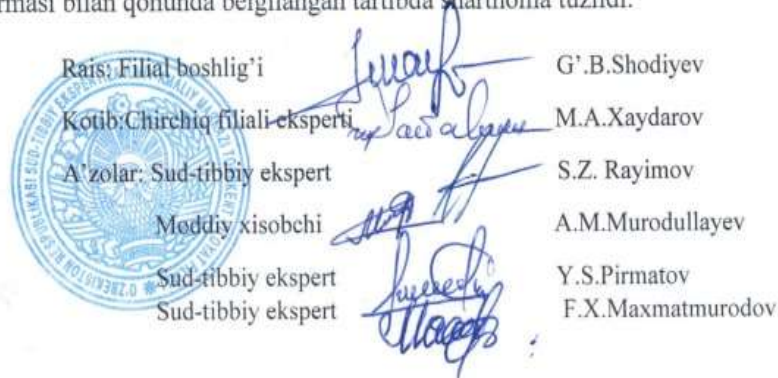 rmasi bilan qonunda belgilangan tartibda shartnoma tuzildi.
Rais: Filial boshlig’i G’.B.Shodiyev
Kotib:Chirchiq filiali eksperti M.A.Xaydarov
A’zolar: Sud-tibbiy ekspert S.Z. Rayimov
Moddiy xisobchi A.M.Murodullayev
Sud-tibbiy ekspert Y.S.Pirmatov
Sud-tibbiy ekspert F.X.Maxmatmurodov